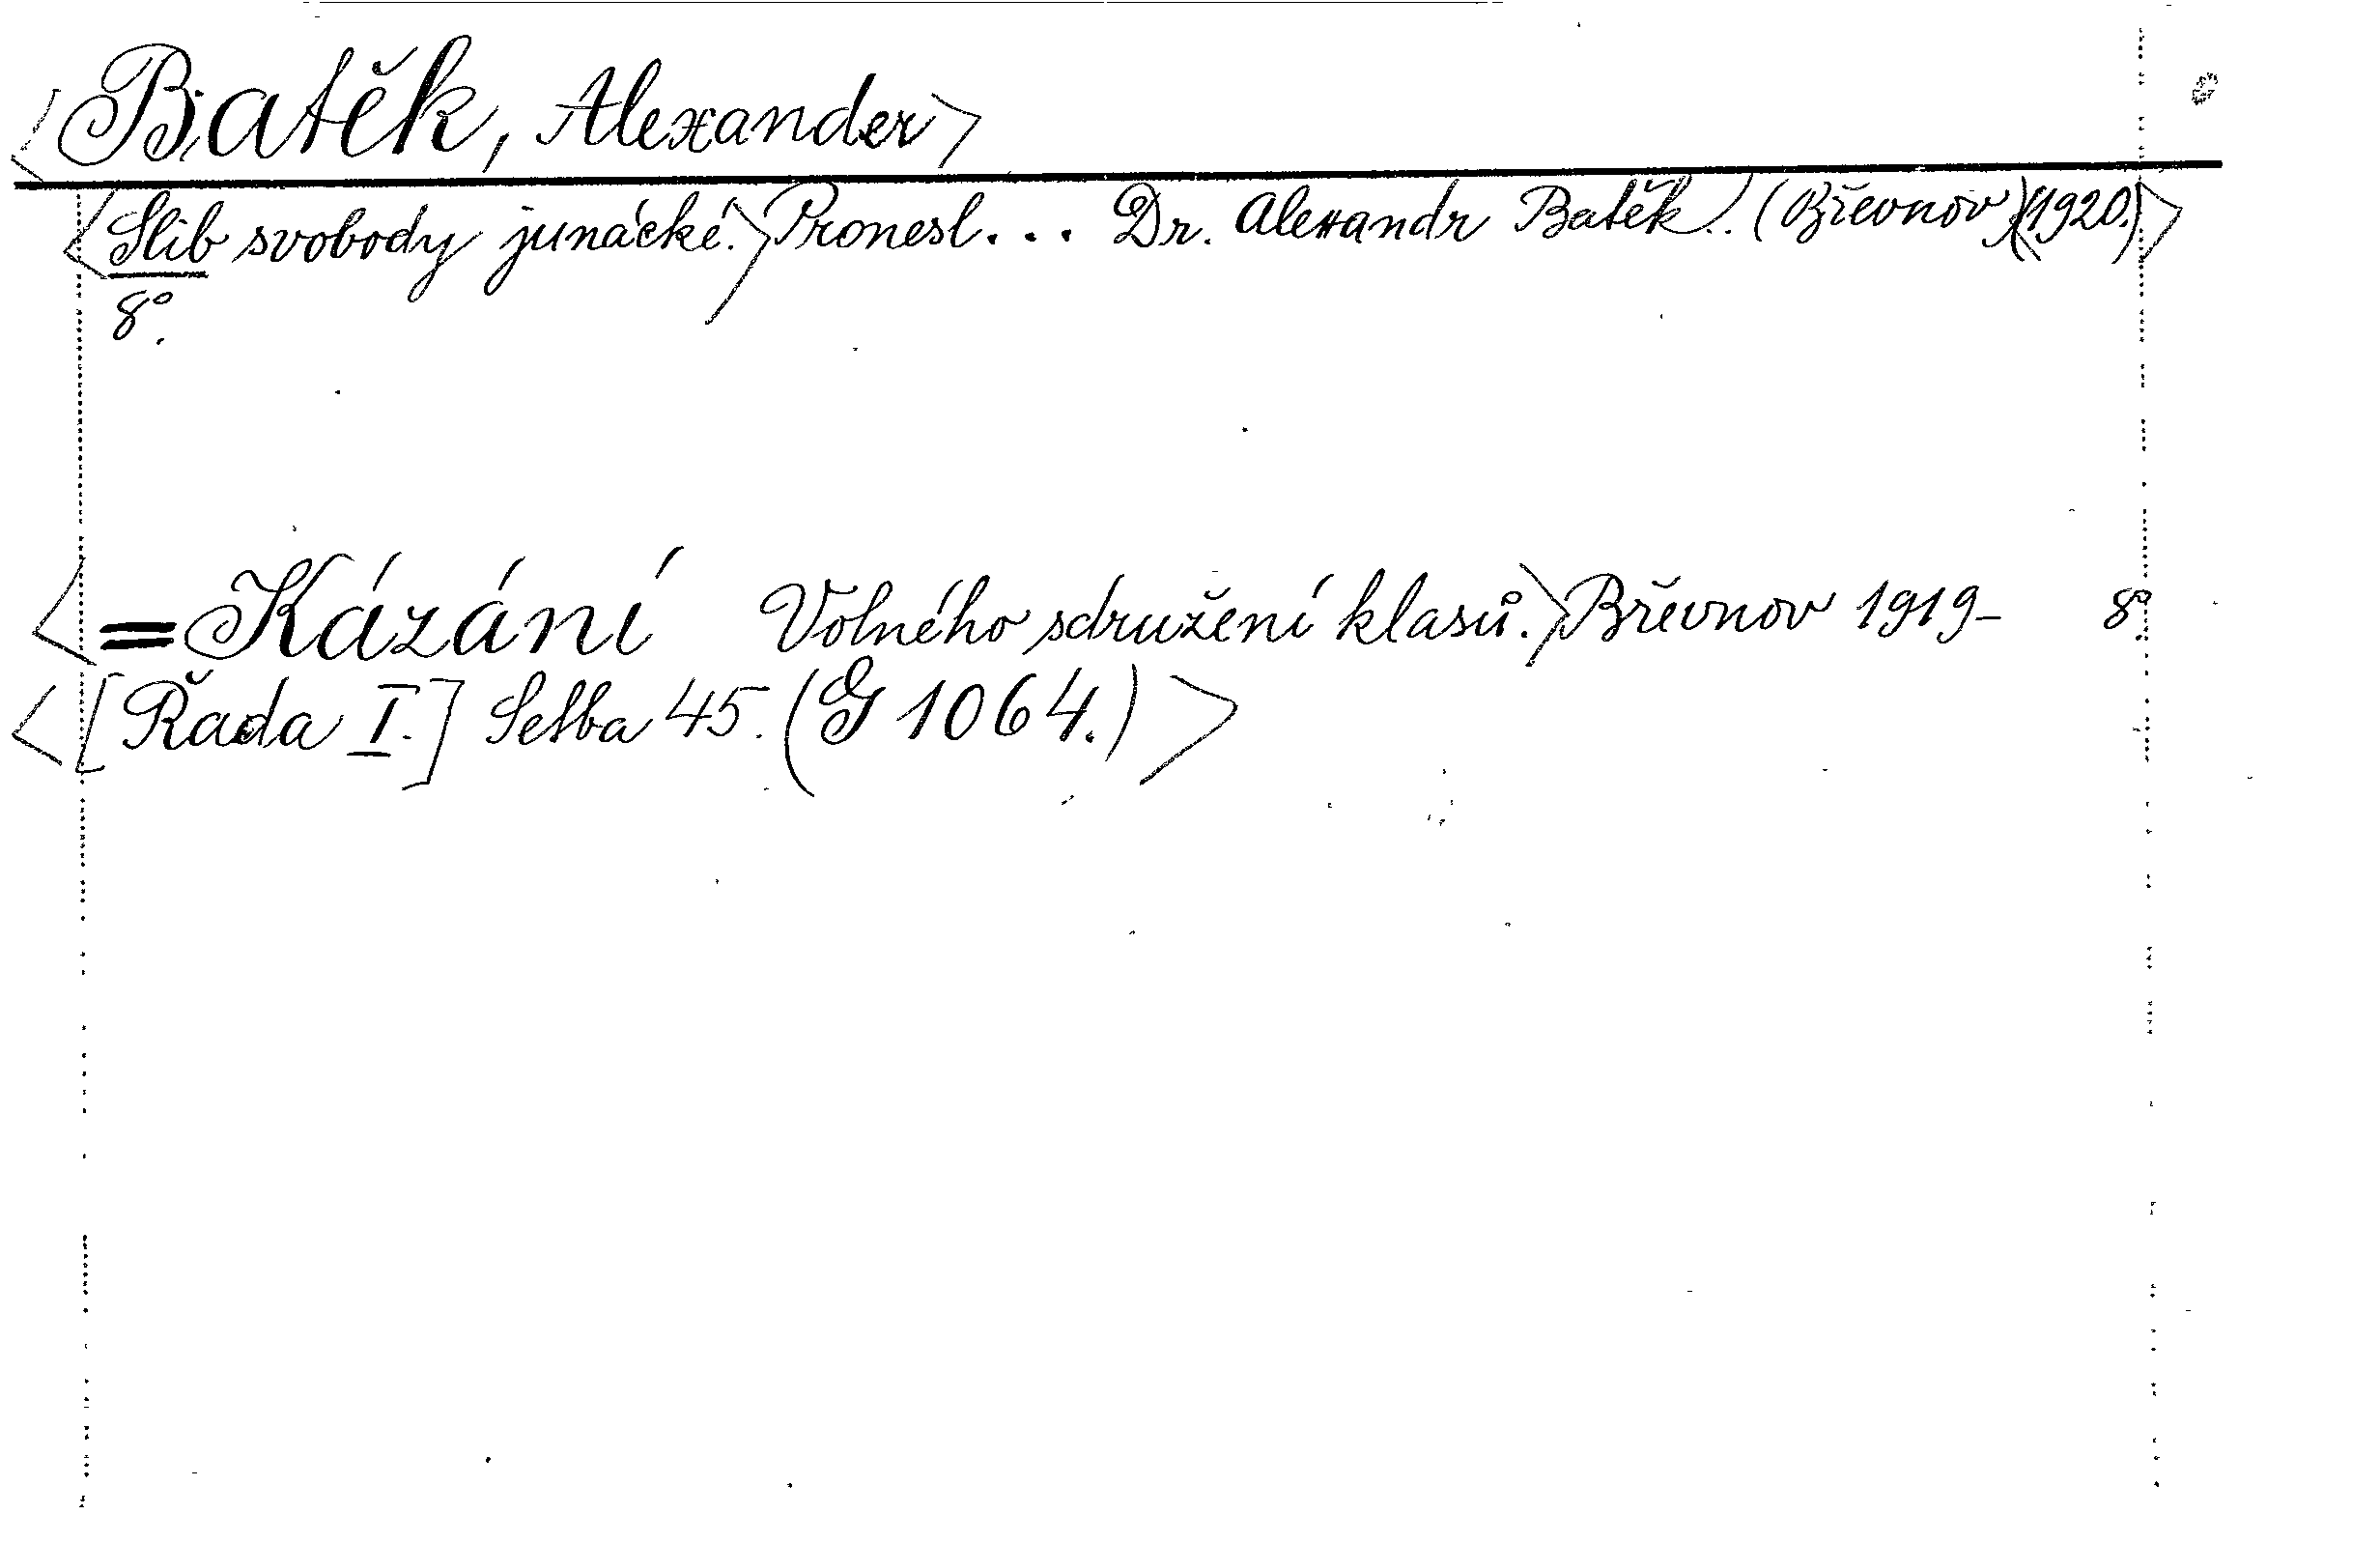 <Batěk, Alexander>
<Slib svobody junácké.> Pronesl... Dr. Alexandr Batěk.. (Břevnov)(1920.)>
8°.
<=Kázání Volného sdružení klasů.> Břevnov 1919- 8°.
<[Řada I.] Setba 45. (G 1064.)>